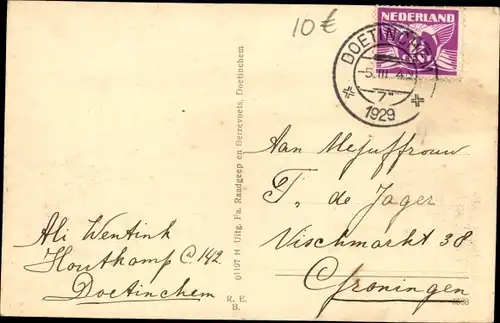 10 €
NEDERLAND
DOETINCHEM
-5.III. 4
1929
Aan Mejuffrouw
T. de Jager
Vischmarkt 38
Groningen
Ali Wentink
Houtkamp C 142
Doetinchem
01107 H Uitg. Fa. Raadgeep en Berrevoets, Doetinchem
R. E.
B.